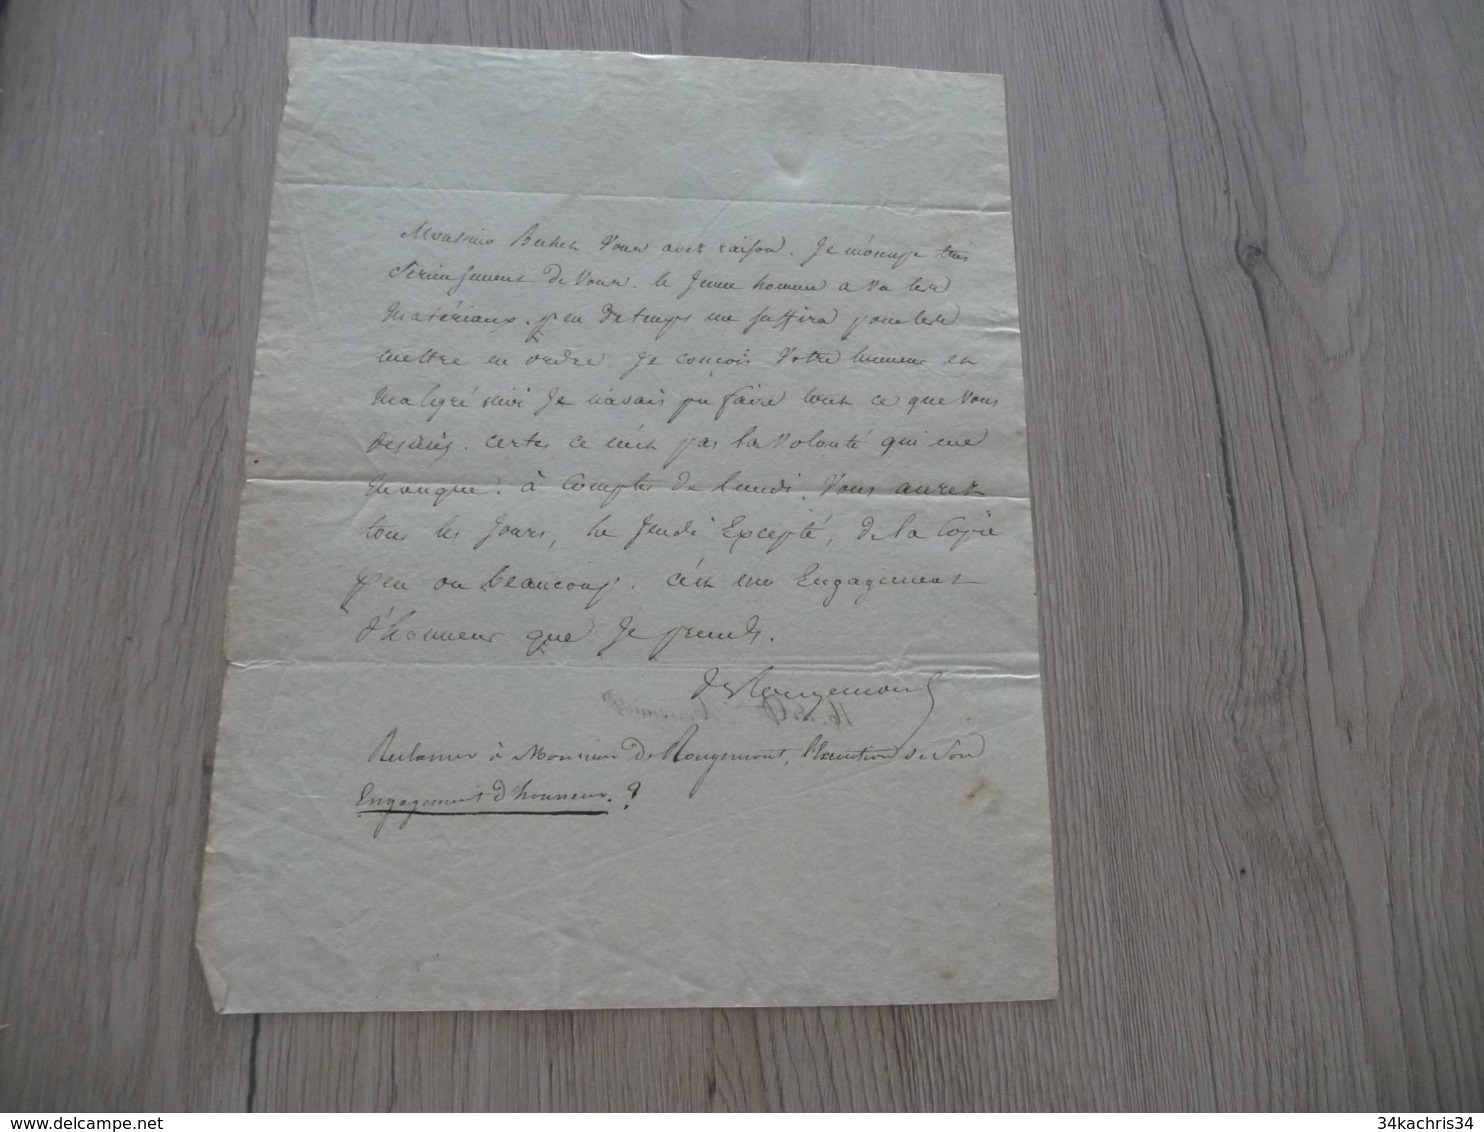 Monsieur Bechet Vous avez raison. Je m'occupe très
Sérieusement de Vous. le Jeune homme a Vu les
Matériaux. peu de temps me suffira pour les
mettre en ordre. Je conçois Votre humeur et
Malgré moi Je n'avais pu faire tout ce que Vous
désiriez. certes ce n'est pas la Volonté qui me
Manque. à Compter de lundi. Vous aurez
tous les Jours, le Jeudi Excepté, de la Copie
peu ou beaucoup. c'est un Engagement
d'honneur que Je prends.
de Rougemont
Reclamer à Monsieur De Rougemont, l'Execution de Son
Engagement d'honneur. ?
34kachris34
www.delcampe.net
34kachris34